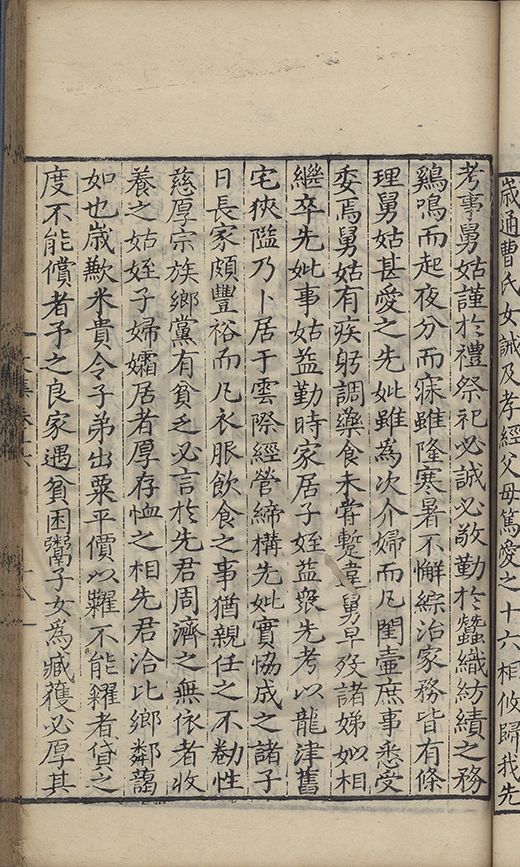 歲通曹氏女誡及孝經父母篤愛之十六相攸歸我先
考事舅姑謹於禮祭祀必誠必敬勤於蠶織紡績之務
鷄鳴而起夜分而寐雖隆寒暑不懈綜治家務皆有條
理舅姑甚愛之先妣雖為次介婦而凡閨壼庶事悉受
委焉舅姑有疾躬調藥食未甞蹔違舅早歿諸娣姒相
繼卒先妣事姑益勤時家居子姪益衆先考以龍津舊
宅狹隘乃卜居于雲際經營締構先妣實恊成之諸子
日長家頗豐裕而凡衣服飲食之事猶親任之不勌性
慈厚宗族鄉黨有貧乏必言於先君周濟之無依者收
養之姑姪子婦孀居者厚存恤之相先君洽比鄉鄰藹
如也歲歉米貴令子弟出粟平價以糶不能糴者貸之
度不能償者予之良家遇貧困鬻子女為臧獲必厚其